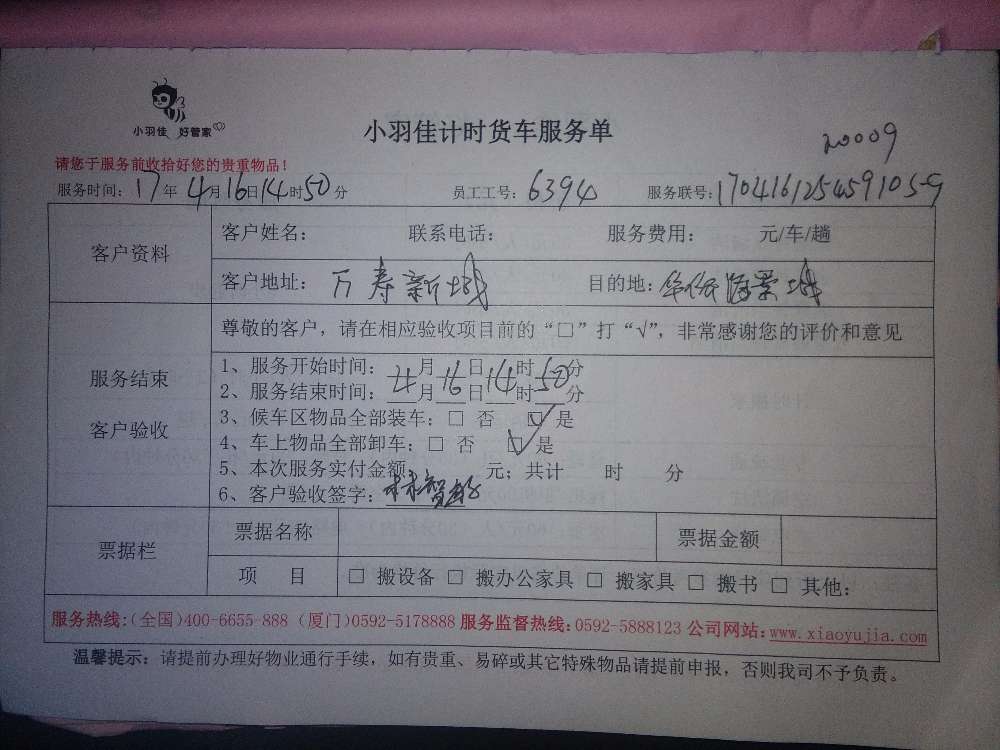 小羽佳 好管家
小羽佳计时货车服务单
20009
请您于服务前收拾好您的贵重物品！
服务时间：17年4月16日14时50分 员工工号：6394 服务联号：
客户资料 客户姓名： 联系电话： 服务费用： 元/车/趟
客户地址：万寿新城 目的地：华侨海景城
尊敬的客户，请在相应验收项目前的“□”打“√”，非常感谢您的评价和意见
服务结束
客户验收
1、服务开始时间： 月 日 时 分
2、服务结束时间：4月16日14时50分
3、候车区物品全部装车：□ 否 ☑ 是
4、车上物品全部卸车：□ 否 ☑ 是
5、本次服务实付金额 元；共计 时 分
6、客户验收签字：
票据栏 票据名称 票据金额
项 目 □ 搬设备 □ 搬办公家具 □ 搬家具 □ 搬书 □ 其他：
服务热线：(全国)400-6655-888 (厦门)0592-5178888 服务监督热线：0592-5888123 公司网站：www.xiaoyujia.com
温馨提示：请提前办理好物业通行手续，如有贵重、易碎或其它特殊物品请提前申报，否则我司不予负责。